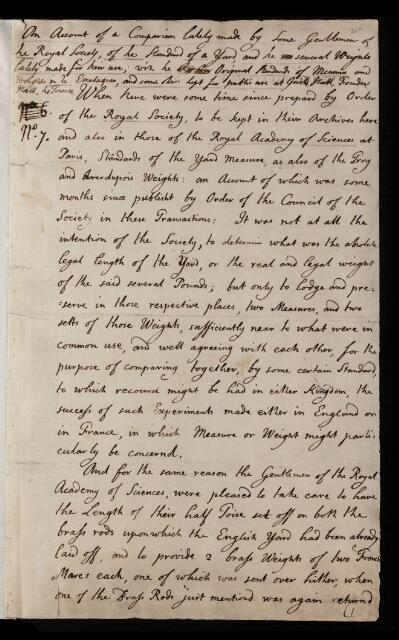 An Account of a Comparison lately made by some Gentlemen of
the Royal Society, of the Standard of a Yard and the several Weights
lately made for their use; with the Original Standards of Measures and
Weights in the Exchequer, and some others kept for publick use at Guildhall, Founders
Hall, the Tower &c.
When there were some time since prepared by Order
No. 7. of the Royal Society, to be kept in their Archives here
and also in those of the Royal Academy of Sciences at
Paris, Standards of the Yard Measure, as also of the Troy
and Averdupois Weights: an Account of which was some
months since publisht by Order of the Council of the
Society in these Transactions: It was not at all the
intention of the Society, to determin what was the absolute
legal length of the Yard, or the real and legal weight
of the said several Pounds; but only to lodge and pre-
-serve in those respective places, two Measures, and two
setts of those Weights, sufficiently near to what were in
common use, and well agreeing with each other, for the
purpose of comparing together, by some certain Standard,
to which recourse might be had in either Kingdom, the
success of such Experiments made either in England or
in France, in which Measure or Weight might parti-
cularly be concernd.
And for the same reason the Gentlemen of the Royal
Academy of Sciences, were pleased to take care to have
the Length of their half Toise set off on both the
brass rods upon which the English Yard had been already
laid off, and to provide 2 brass Weights of two French
Marcs each, one of which was sent over hither, when
one of the Brass Rods just mentiond was again returnd